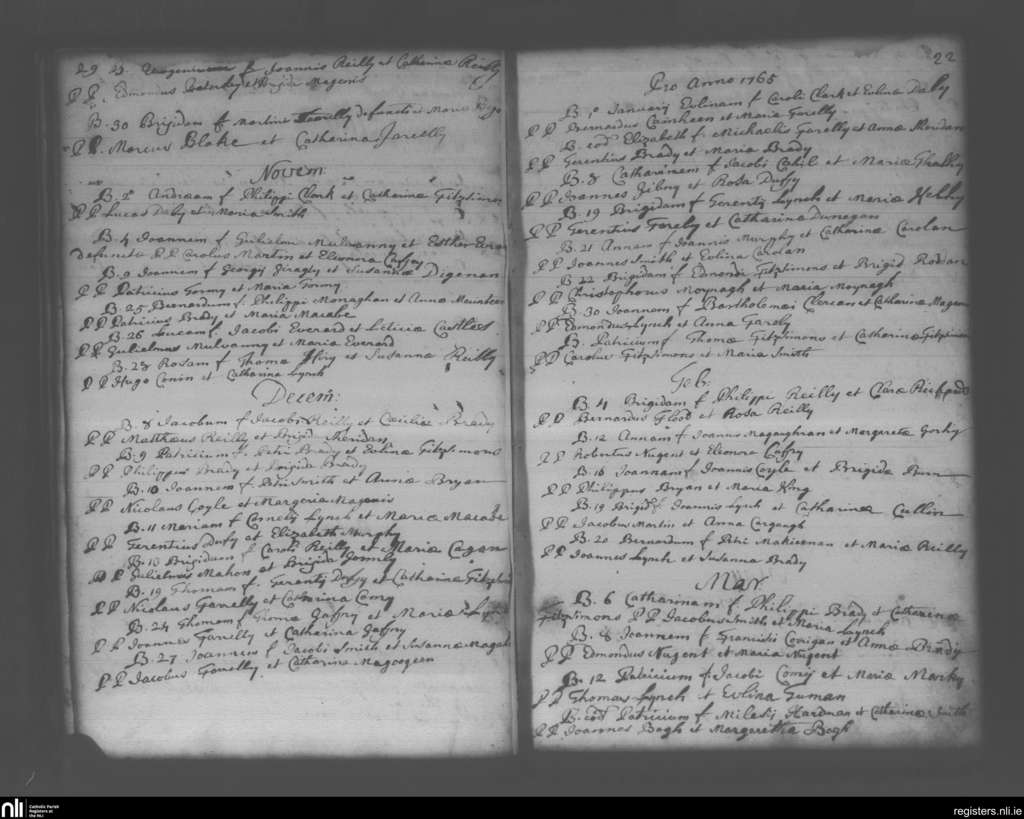 29 f Joannis Reilly et Catherina Reilly
PP. Edmundus et Brigida Magenis
B. 30 Brigidam f Martini defuncti et Maria
PP. Marcus Blake et Catharina Farrelly
Novem
B. 2 Andream f Philippi Clark et Catharina Fitzsimons
PP Lucas Daly et Maria Smith
B. 4 Joannem f Gulielmi Mulvanny et Esther
defuncta PP Carolus Martin et Eleonora Caffry
B. 9 Joannem f Georgii et Susanna Digenan
PP Patricius Tormy et Maria Tormy
B. 25 Bernardum f Philippi Monaghan et Anna
PP Patricius Brady et Maria Macabe
B. 26 Lucam f. Jacobi Everard et Leticia Castles
PP Gulielmus Mulvanny et Maria Everard
B. 28 Rosam f Thoma et Susanna Reilly
PP Hugo Conin et Catharina Lynch
Decem:
B. 8 Jacobum f Jacobi Reilly et Cæcilia Brady
PP Matthæus Reilly et Brigid Sheridan
B. 9 Patricium f. Petri Brady et Evlina Fitzsimons
PP Philippus Brady et Brigida Brady
B. 10 Joannem f Petri Smith et Anna Bryan
PP Nicolaus Coyle et Margeria Magenis
B. 11 Mariam f Cornelii Lynch et Maria Macabe
PP Terentius Dufy et Elizabeth Murphy
B. 13 Brigidam f Caroli Reilly et Maria Cagan
PP Gulielmus Mahon et Brigida
B. 19 Thomam f. Terentii Duffy et Catharina
PP Nicolaus Farrelly et Catharina Comy
B. 24 Thomam f Thoma Gaffry et Maria
PP Joannes Farrelly et Catharina Gaffry
B. 27 Joannem f Jacobi Smith et Susanna
PP Jacobus Farrelly et Catharina Magoogeen
22
Pro Anno 1765
B. 1 Januarii Evlinam f Caroli Clark et Evlina Daly
PP Bernardus et Maria Farelly
B. eod Elizabeth f Michaelis Farelly et Anna Sheridan
PP Terentius Brady et Maria Brady
B. 8 Catharinam f Jacobi Cahil et Maria
PP Joannes et Rosa Duffy
B. 19 Brigidam f Terentii Lynch et Maria Kelly
PP Terentius Farely et Catharina Dunegan
B. 21 Annam f Joannis Murphy et Catharina Carolan
PP Joannes Smith et Evlina Carolan
B. 22 Brigidam f Edmondi Fitzsimons et Brigid
PP Christophorus Moynagh et Maria Moynagh
B. 30 Joannem f Bartholomæi et Catharina
PP Edmondus Lynch et Anna Farely
B. Patricium f Thomæ Fitzsimons et Catharina Fitzsimons
PP Carolus Fitzsimons et Maria Smith
Feb:
B. 4 Brigidam f Philippi Reilly et Clara
PP Bernardus Flood et Rosa Reilly
B. 12 Annam f Joannis Magaughran et Margareta
PP Robertus Nugent et Eleonora Caffry
B. 16 Joannam f Joannis Coyle et Brigida
PP Philippus Bryan et Maria King
B. 19 Brigid f Joannis Lynch et Catharina Cullin
PP Jacobus Martin et Anna
B. 20 Bernardum f Petri et Maria Reilly
PP Joannes Lynch et Susanna Brady
Mar
B. 6 Catharinam f. Philippi Brady et Catharina
Fitzsimons PP Jacobus Smith et Maria Lynch
B. 8 Joannem f Francisci Corigan et Anna Brady
PP Edmondus Nugent et Maria Nugent
B. 12 Patricium f Jacobi Comy et Maria
PP Thomas Lynch et Evlina
B. eod Patricium f. Milesii Hardman et Catherina Smith
PP Joannes Bagh et Margaretha Bagh
nli
Catholic Parish
Registers at
the NLI
registers.nli.ie